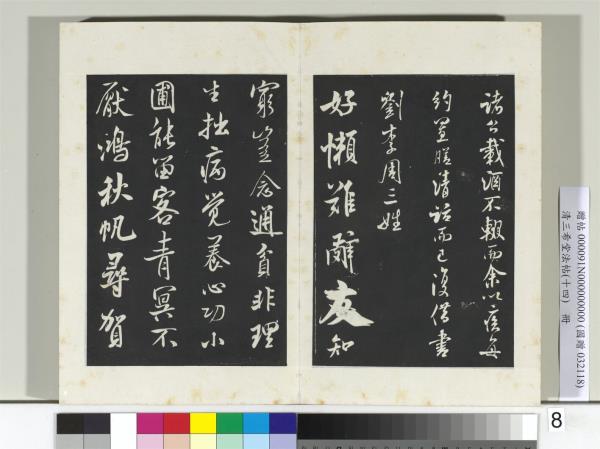 諸公載酒不輟而余以疾每
約置膳清話而已復借書
劉李周三姓
好懶難辭友知
窮豈念通貧非理
生拙病覺養心功小
圃能留客青冥不
厭鴻秋帆尋賀
贈帖 000091N000000000 (國贈 032118)
清三希堂法帖(十四) 冊
8